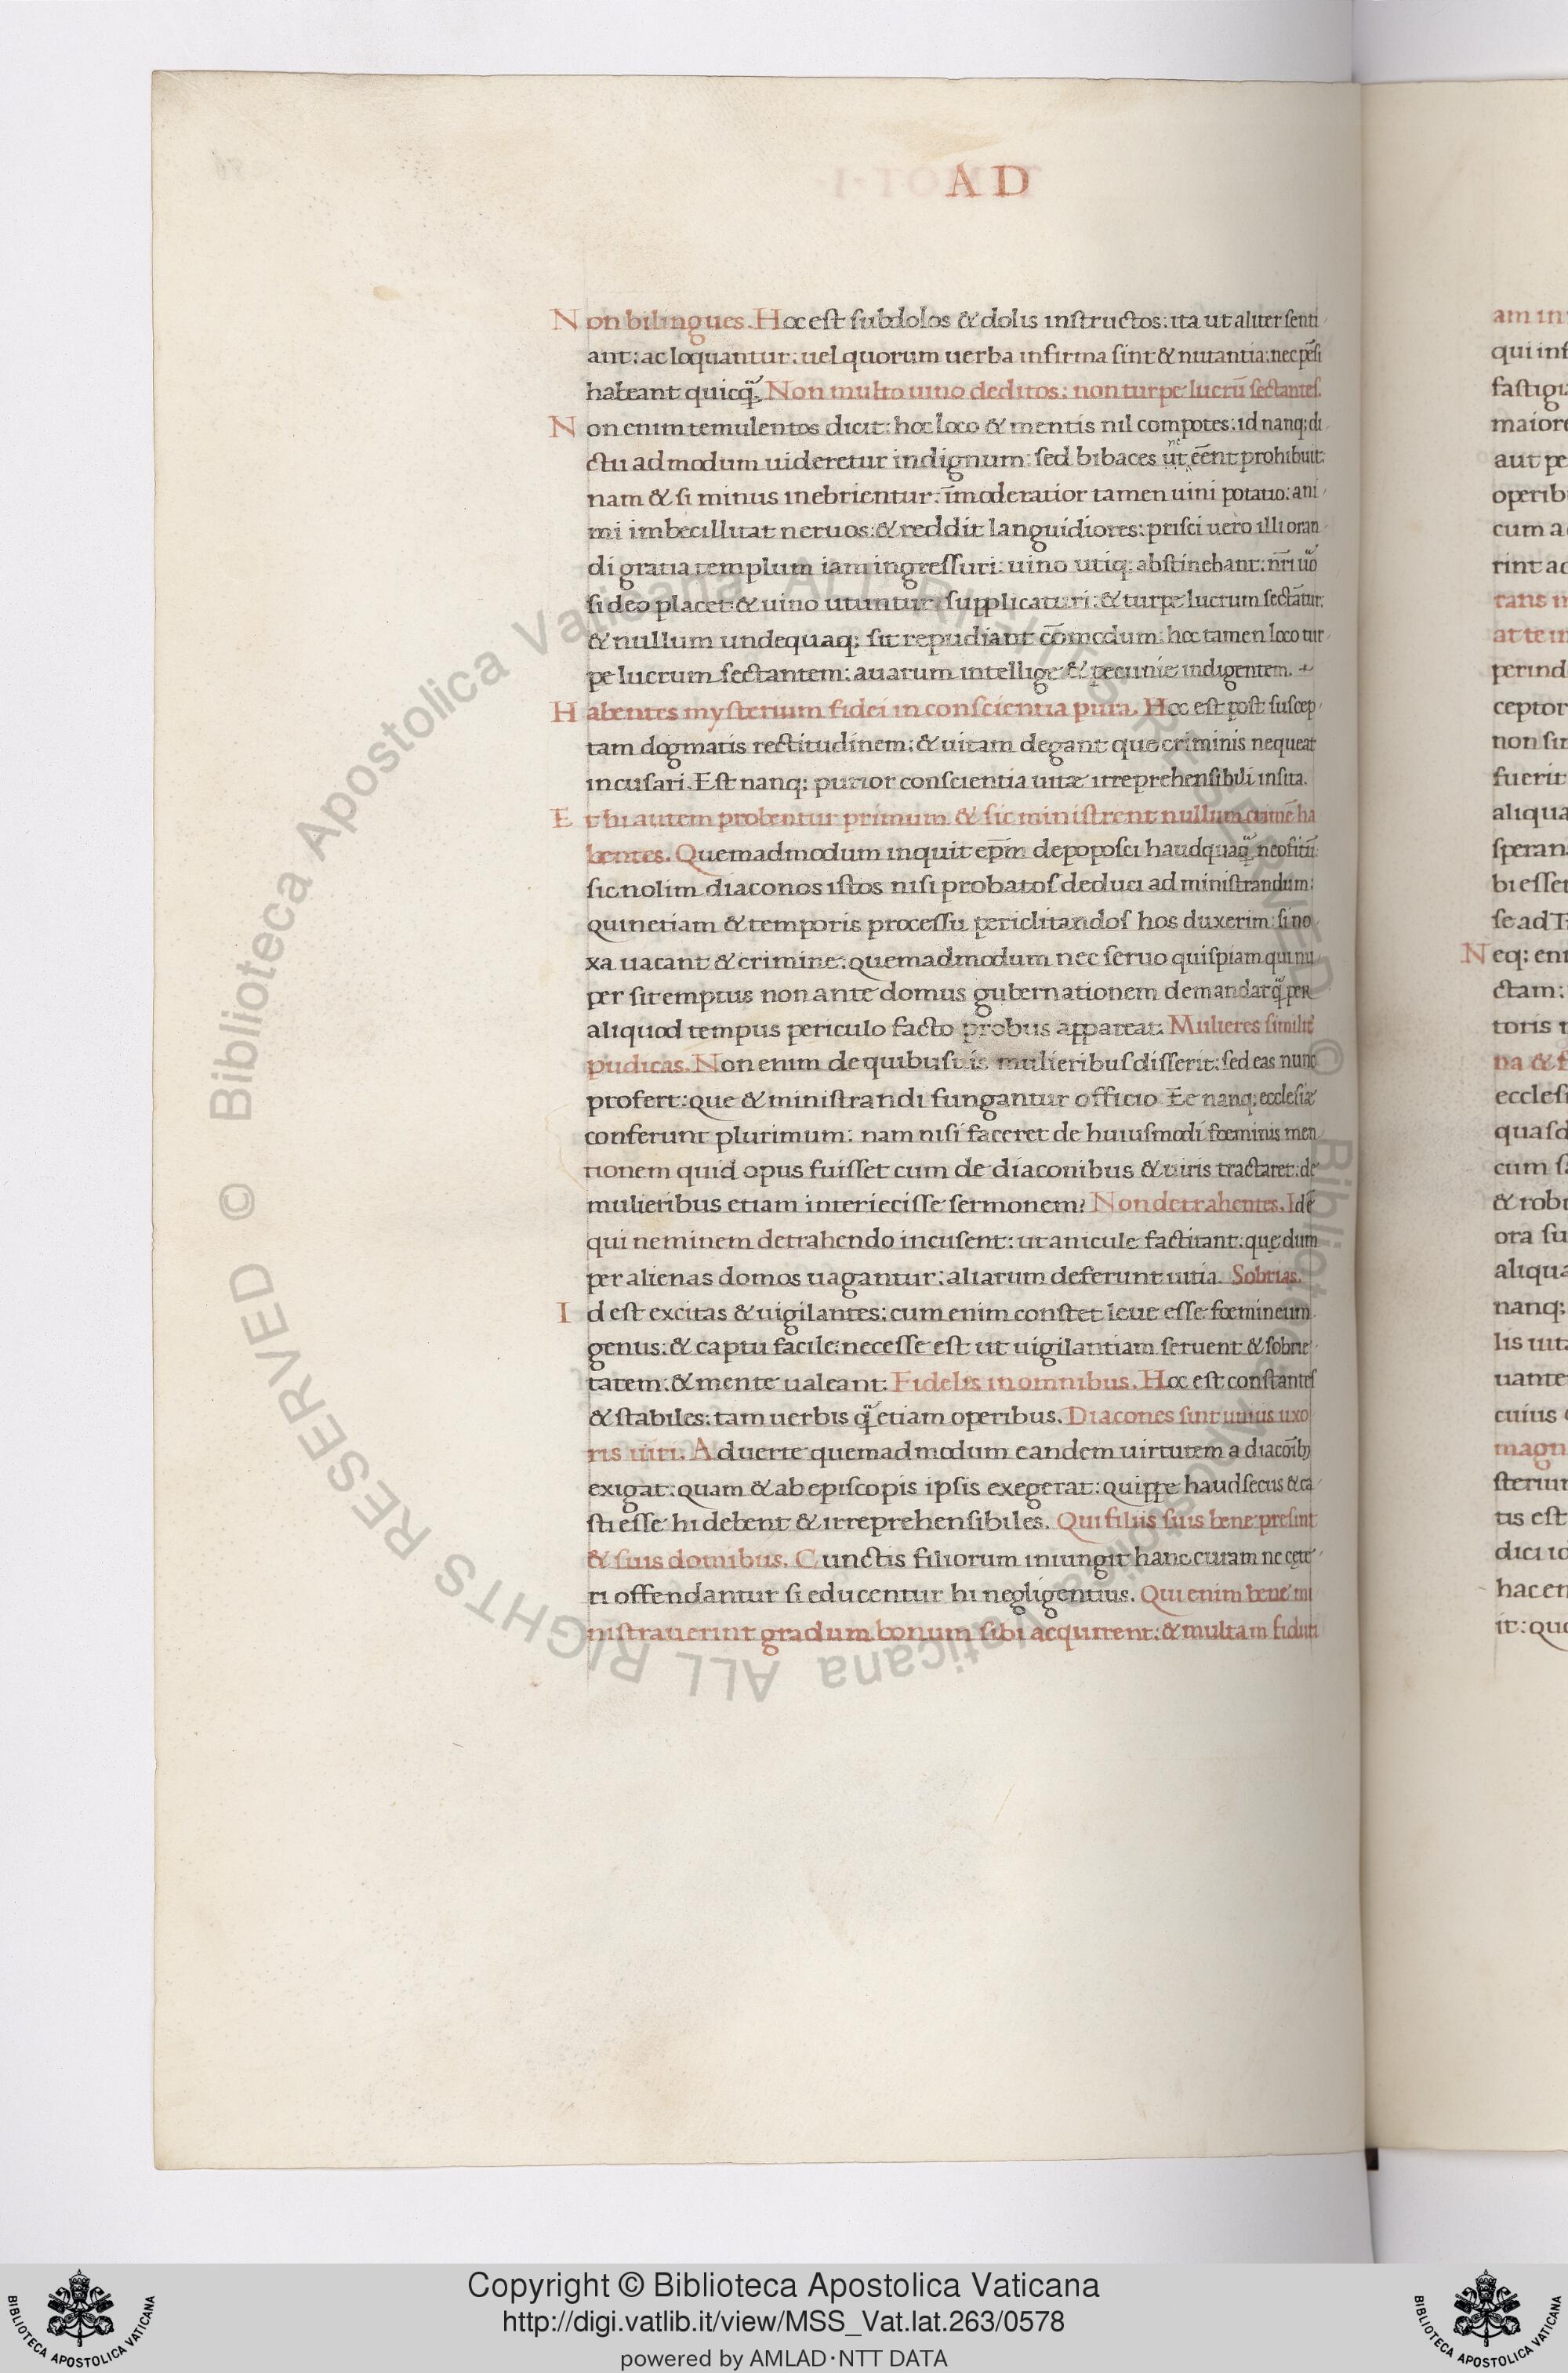 AD
Non bilingues. Hoc est subdolos & dolis instructos: ita ut aliter senti
ant: ac loquantur: uel quorum uerba infirma sint & nutantia: nec pēsi
habeant quicq̃. Non multo uino deditos: non turpe lucrū sectantes.
Non enim temulentos dicit: hoc loco & mentis nil compotes: id nanq; di
ctu admodum uideretur indignum: sed bibaces ut ne eēnt prohibuit:
nam & si minus inebrientur: īmoderatior tamen uini potatio: ani
mi imbecillitat neruos: & reddit languidiores: prisci uero illi oran
di gratia templum iam ingressuri: uino utiq; abstinebant: nr̄i uo
si deo placet & uino utuntur supplicaturi: & turpe lucrum sectāt̄ur:
& nullum undequaq; sit repudiant cōmodum: hoc tamen loco tur
pe lucrum sectantem: auarum intellige & pecunie indigentem.
Habentes mysterium fidei in conscientia pura. Hoc est post suscep
tam dogmatis rectitudinem: & uitam degant que criminis nequeat
incusari. Est nanq; purior conscientia uitæ irreprehensibili insita.
Et hi autem probentur primum & sic ministrent nullum crimē ha
bentes. Quemadmodum inquit ep̄m depoposci haudquaq̃ neofitū:
sic nolim diaconos istos nisi probatos deduci ad ministrandum:
quinetiam & temporis processu periclitandos hos duxerim: si no
xa uacant & crimine: quemadmodum nec seruo quispiam qui nu
per sit emptus non ante domus gubernationem demandat q̃ per
aliquod tempus periculo facto probus appareat. Mulieres similit̃
pudicas. Non enim de quibusuis mulieribus disserit: sed eas nunc
profert: que & ministrandi fungantur officio Ee nanq; ecclesiæ
conferunt plurimum: nam nisi faceret de huiusmodi foeminis men
tionem quid opus fuisset cum de diaconibus & uiris tractaret: de
mulieribus etiam interiecisse sermonem? Non detrahentes. Idē
qui neminem detrahendo incusent: ut anicule factitant: quę dum
per alienas domos uagantur: aliarum deferunt uitia. Sobrias.
Id est excitas & uigilantes: cum enim constet leue esse foemineum
genus: & captu facile: necesse est ut uigilantiam seruent & sobrie
tatem: & mente ualeant: Fidelis in omnibus. Hoc est constantes
& stabiles: tam uerbis q̃ etiam operibus. Diacones sint unius uxo
ris uiri. Aduerte quemadmodum eandem uirtutem a diacōib;
exigat: quam & ab episcopis ipsis exegerat: quippe haud secus & ca
sti esse hi debent & irreprehensibiles. Qui filiis suis bene presint
& suis domibus. Cunctis filiorum iniungit hanc curam ne cęte
ri offendantur si educentur hi negligentius. Qui enim bene mi
nistrauerint gradum bonum sibi acquirent: & multam fiduti
am in
qui inf
fastigi
maiore
aut pe
operib
cum a
rint ac
at te
perind
ceptor
non sin
fuerit
aliqua
speran
bi esset
se ad T
Neq; eni
ctam:
toris
na & f
ecclesi
quasd
cum
& rob
ora su
aliqua
nanq;
lis uit
uante
cuius
magn
steriu
tis est
dici
hac en
it: qu
Copyright © Biblioteca Apostolica Vaticana
http://digi.vatlib.it/view/MSS_Vat.lat.263/0578
powered by AMLAD·NTT DATA
BIBLIOTECA APOSTOLICA VATICANA
BIBLIOTECA APOSTOLICA VATICANA
© Biblioteca Apostolica Vaticana ALL RIGHTS RESERVED
© Biblioteca Apostolica Vaticana ALL RIGHTS RESERVED